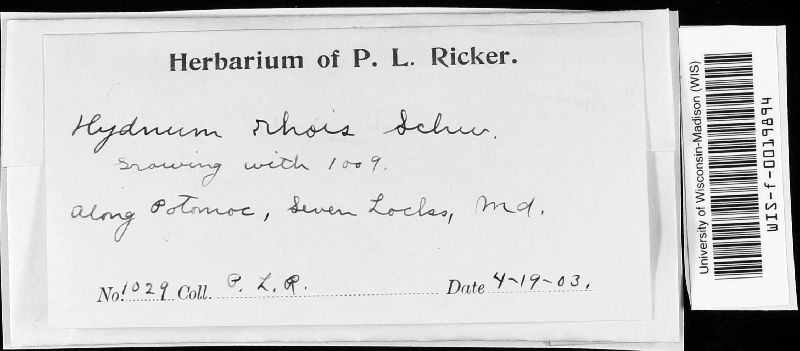 Herbarium of P. L. Ricker.
Hydnum rhois Schw.
Growing with 1009.
Along Potomac, Seven Locks, Md.
No. 1029 Coll. P. L. R. Date 4-19-03.
University of Wisconsin-Madison (WIS)
WIS-f-0019894